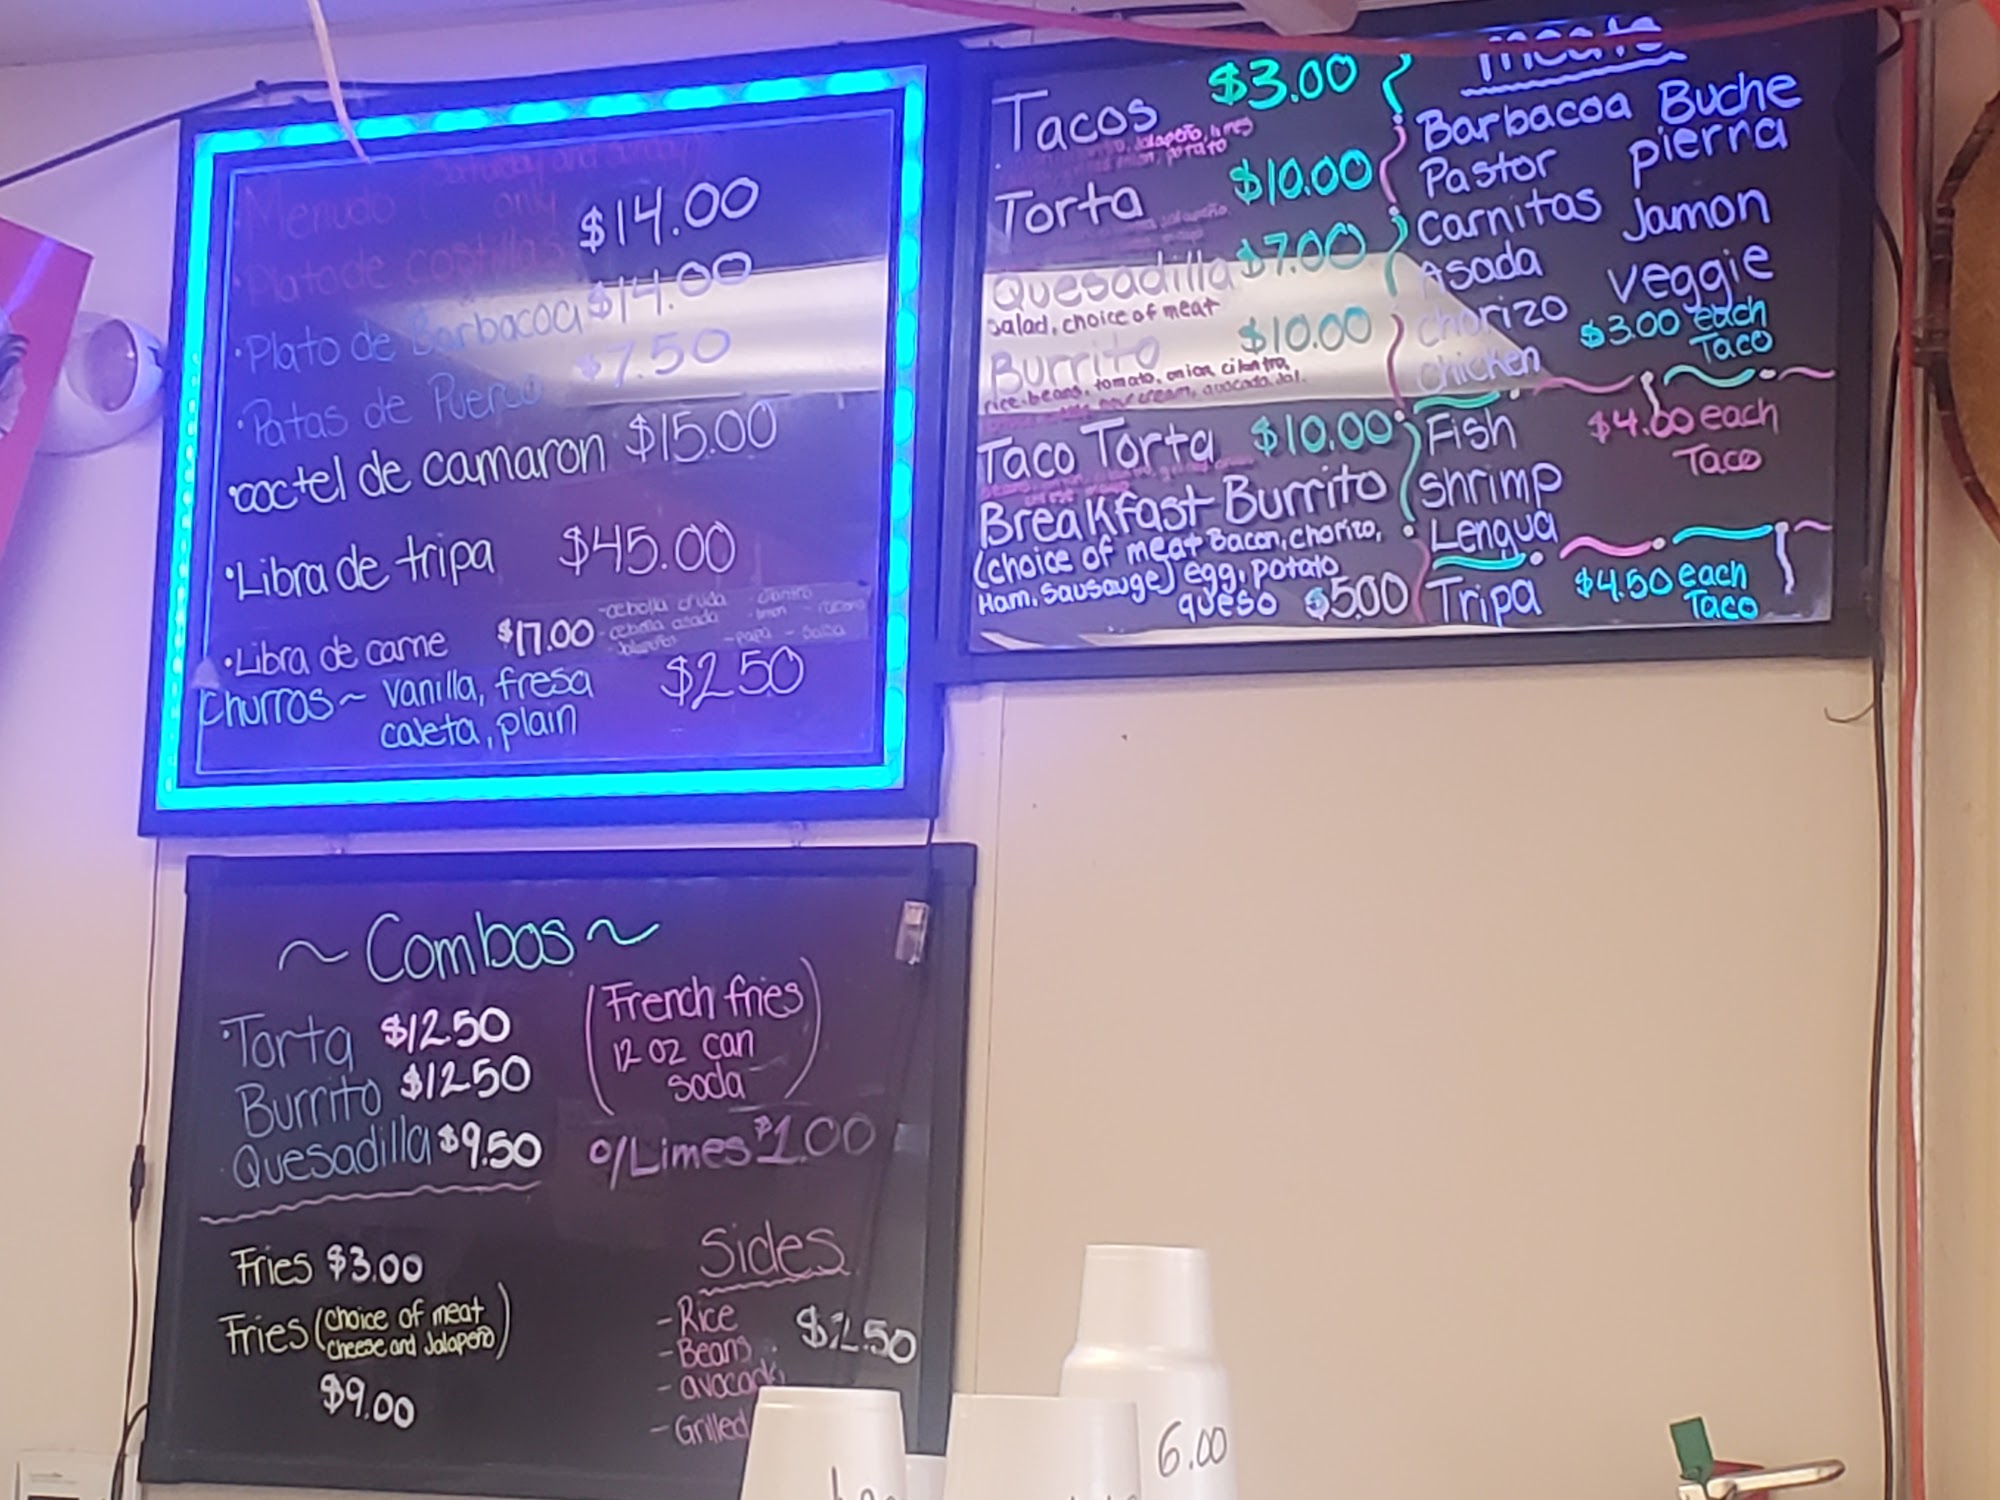 Menudo Saturday and Sunday only
• Plato de costillas $14.00
• Plato de Barbacoa $14.00
• Patas de Puerco $7.50
• coctel de camaron $15.00
• Libra de tripa $45.00
• Libra de carne $17.00
- cebolla cruda - cilantro
- cebolla asada - limon
- papa - salsa
Churros ~ vanilla, fresa
caleta, plain $2.50
Tacos $3.00
Jalapeño, limes
potato
Torta $10.00
Jalapeño
Quesadilla $7.00
salad, choice of meat
Burrito $10.00
rice, beans, tomato, onion, cilantro,
sour cream, avocado, Jal.
Taco Torta $10.00
Breakfast Burrito
(choice of meat Bacon, chorizo,
Ham, Sausauge) egg, potato
queso $5.00
meats
Barbacoa Buche
Pastor pierna
Carnitas Jamon
Asada veggie
chorizo $3.00 each
chicken Taco
Fish $4.00 each
shrimp Taco
Lengua
Tripa $4.50 each
Taco
~ Combos ~
• Torta $12.50
Burrito $12.50
• Quesadilla $9.50
(French fries
12 oz can
soda)
o/Limes $1.00
Fries $3.00
Fries (choice of meat
cheese and Jalapeño)
$9.00
Sides
- Rice $2.50
- Beans
- avocado
- Grilled
6.00